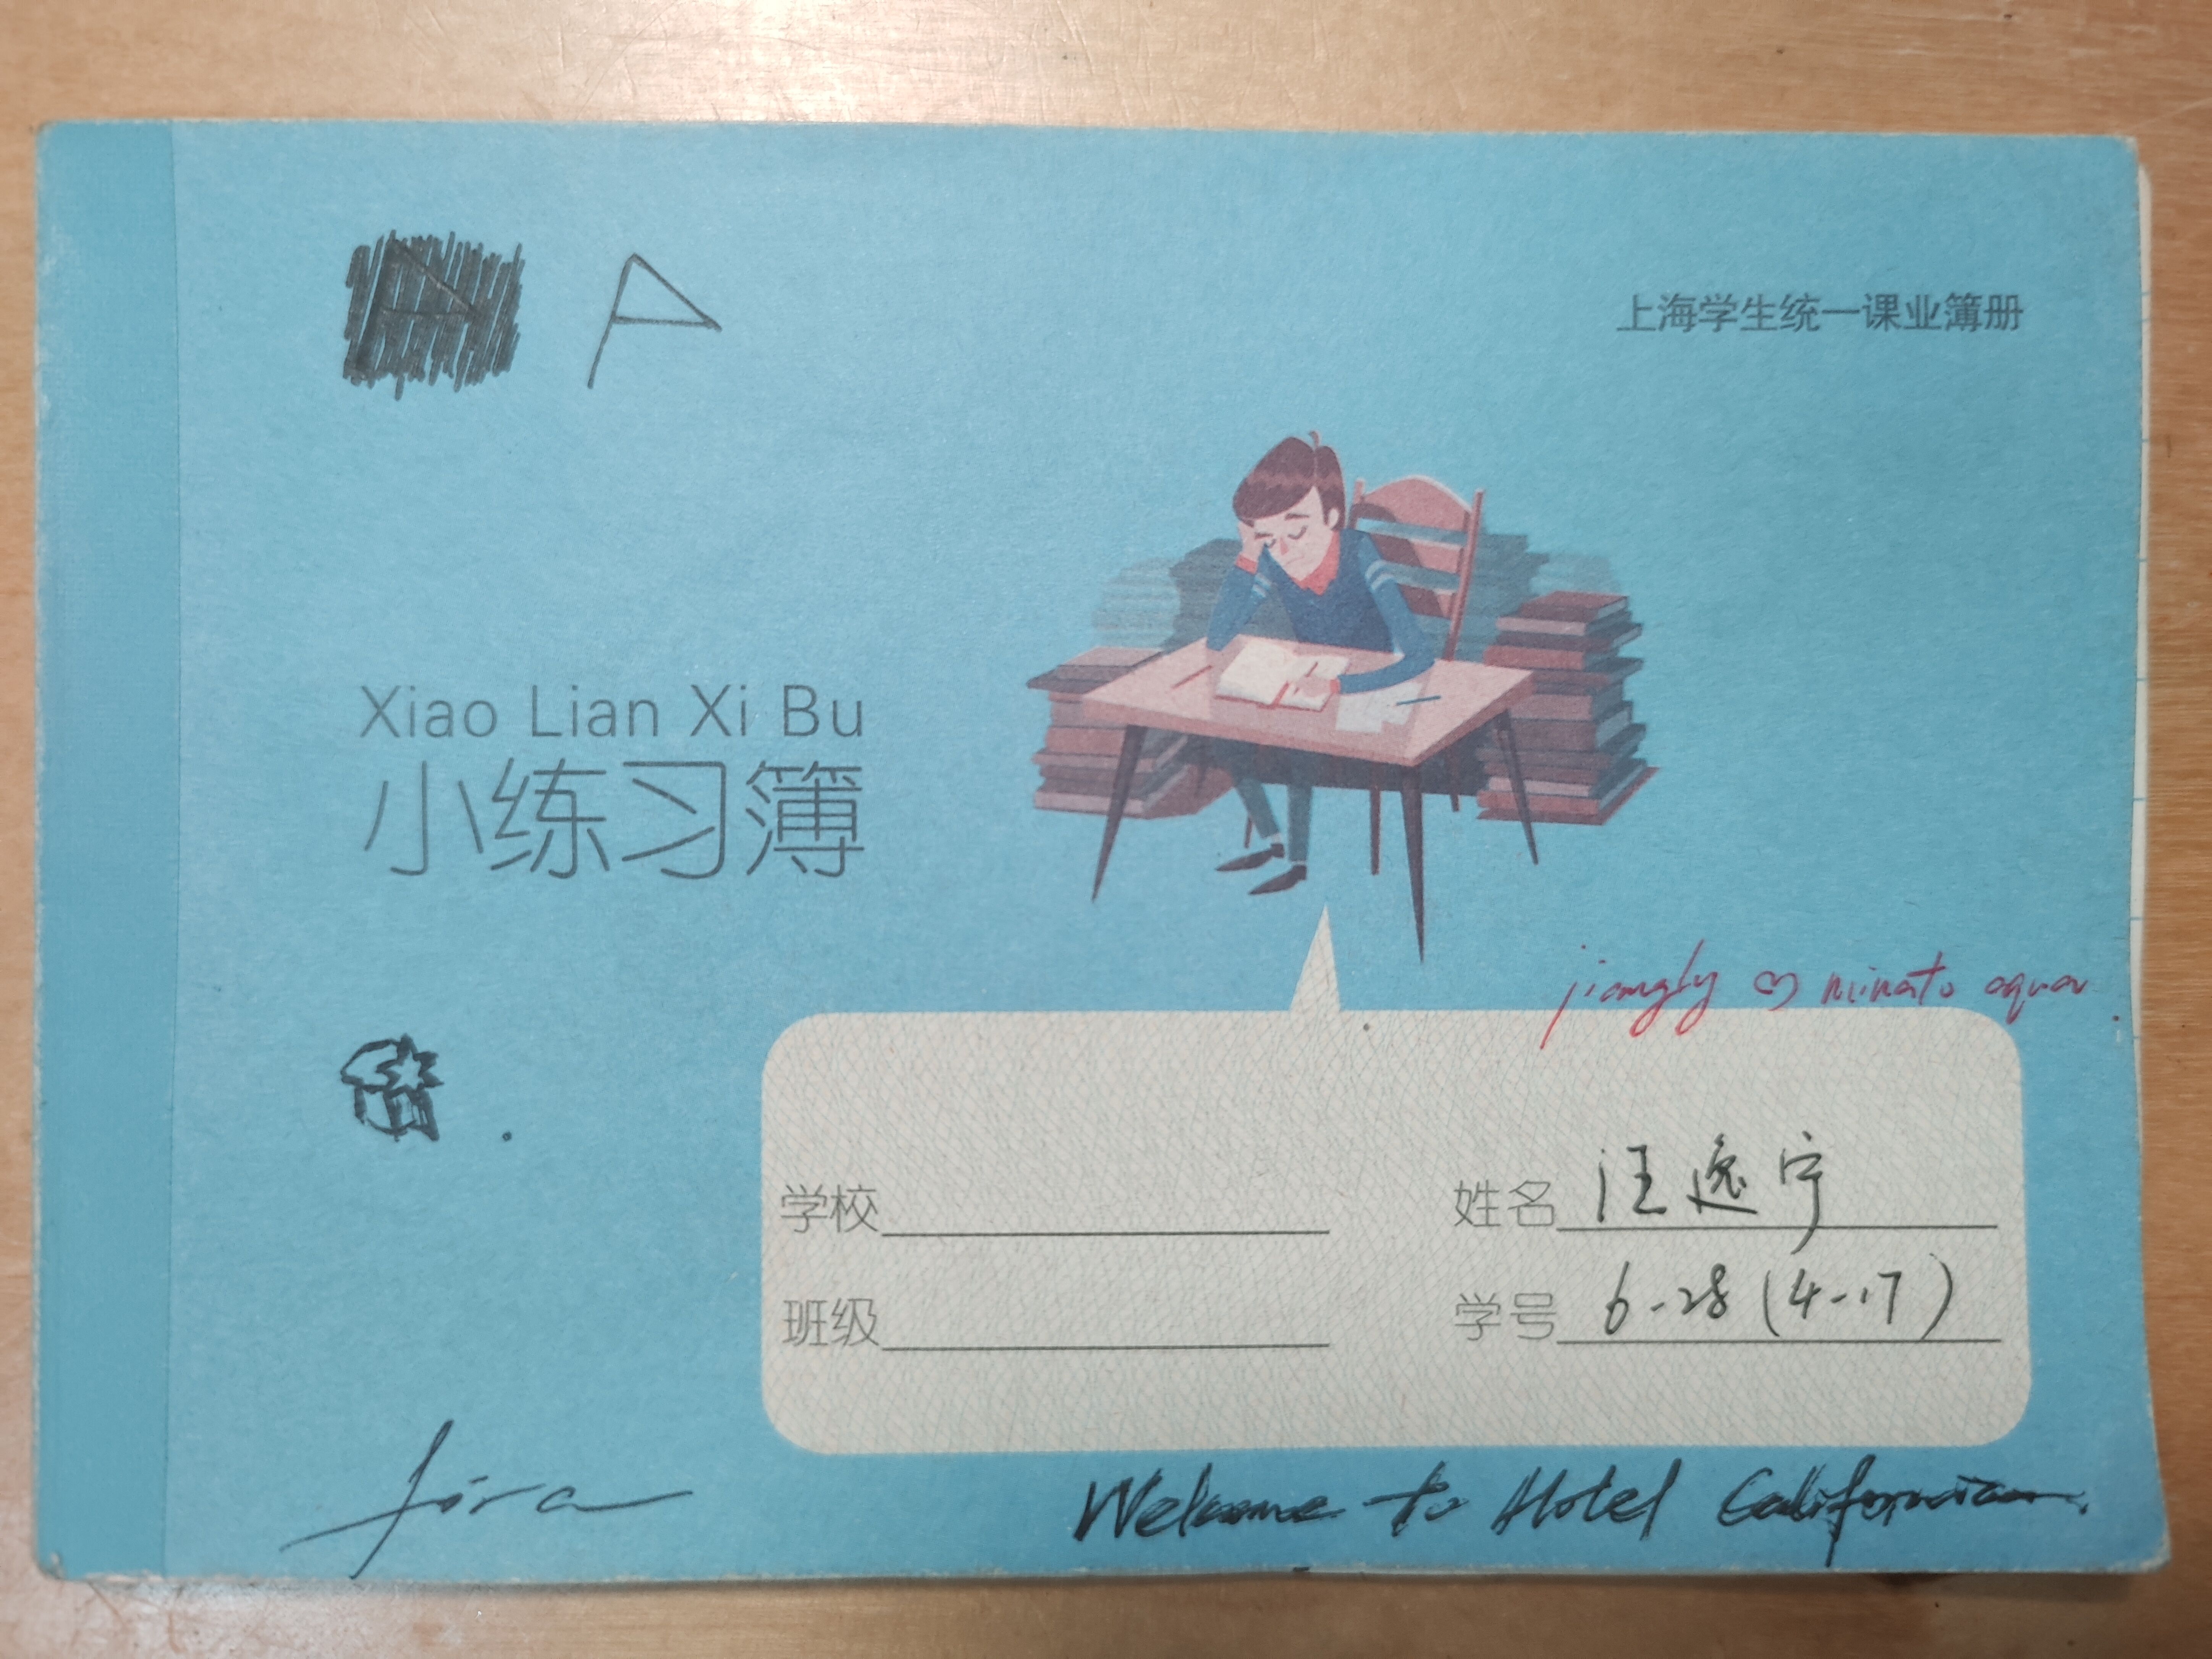 上海学生统一课业簿册
Xiao Lian Xi Bu
小练习簿
jiangly ♡ minato aqua.
学校
姓名 汪逸宁
班级
学号 6-28 (4-17)
Welcome to Hotel California.